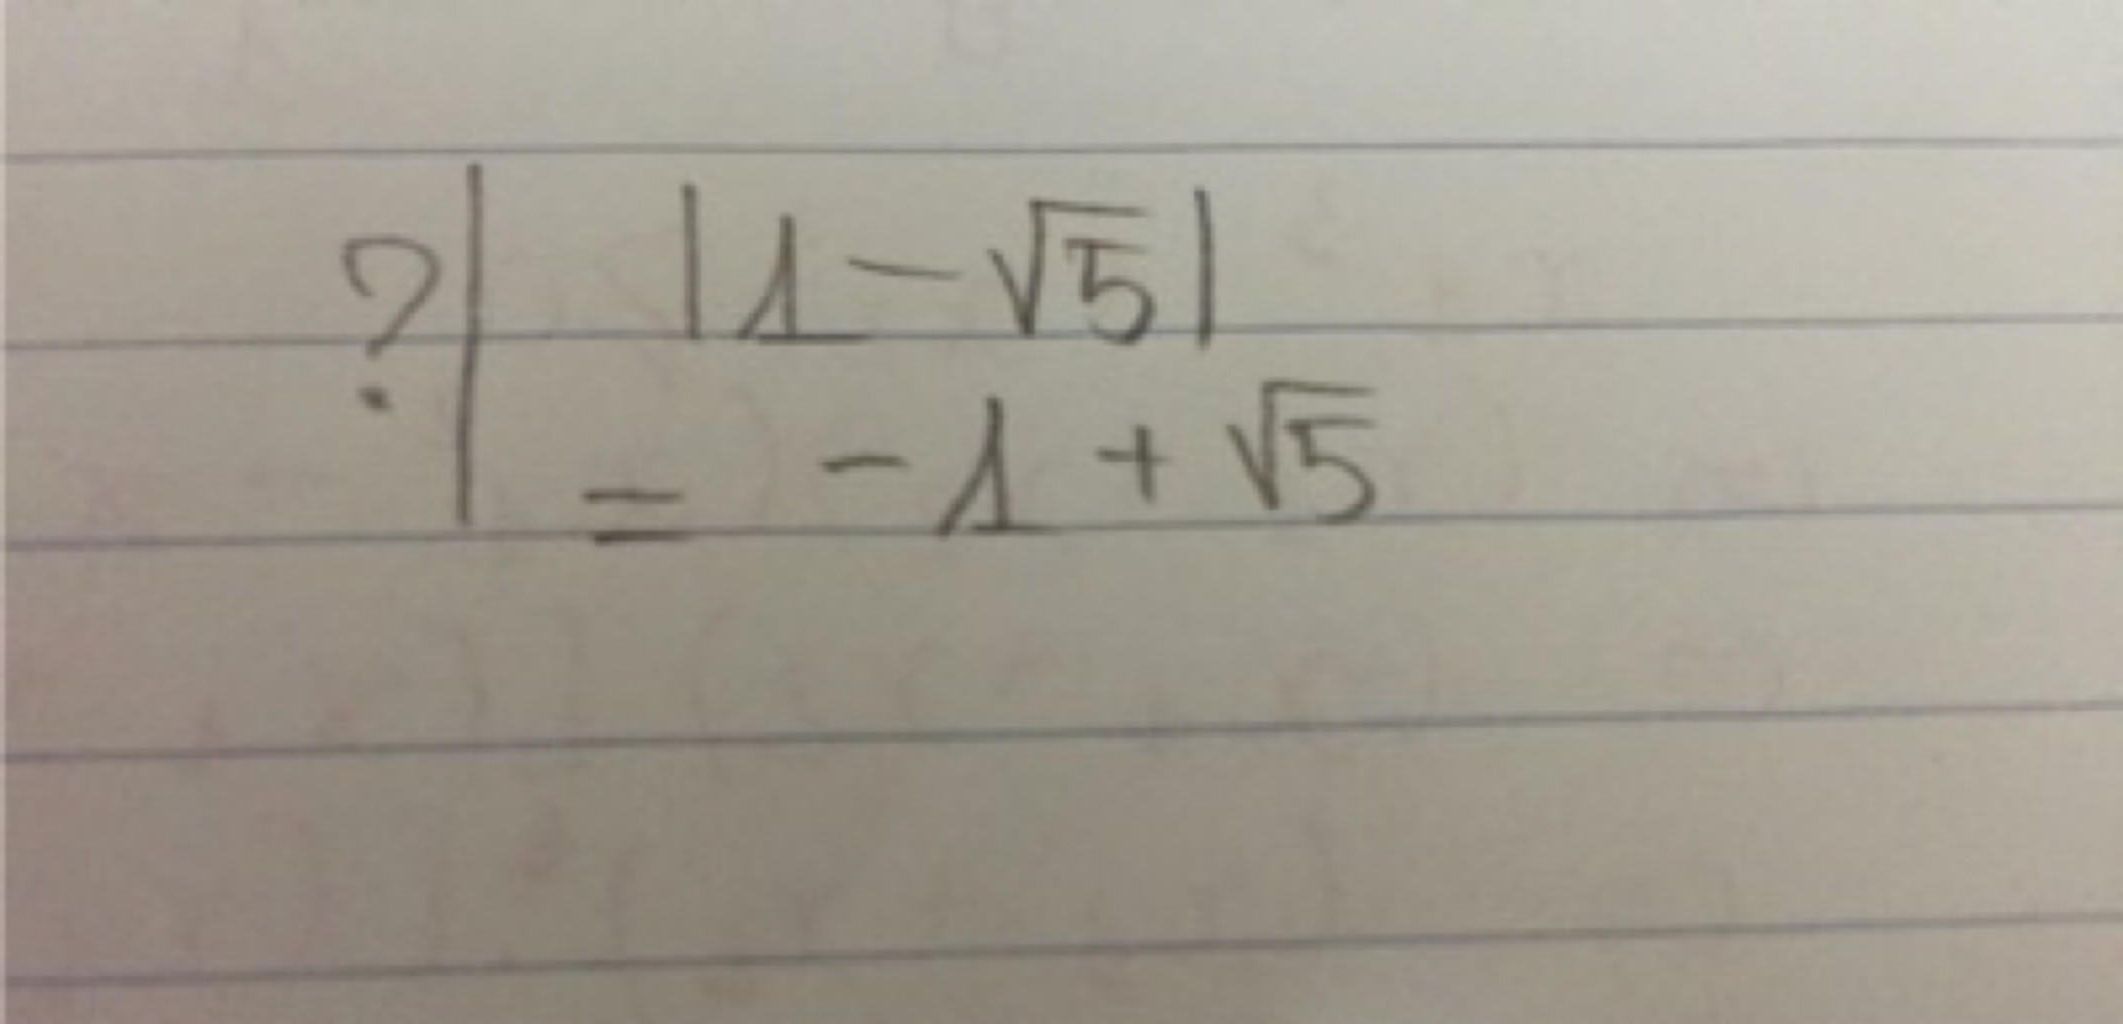 ?| |1-√5|
= -1+√5